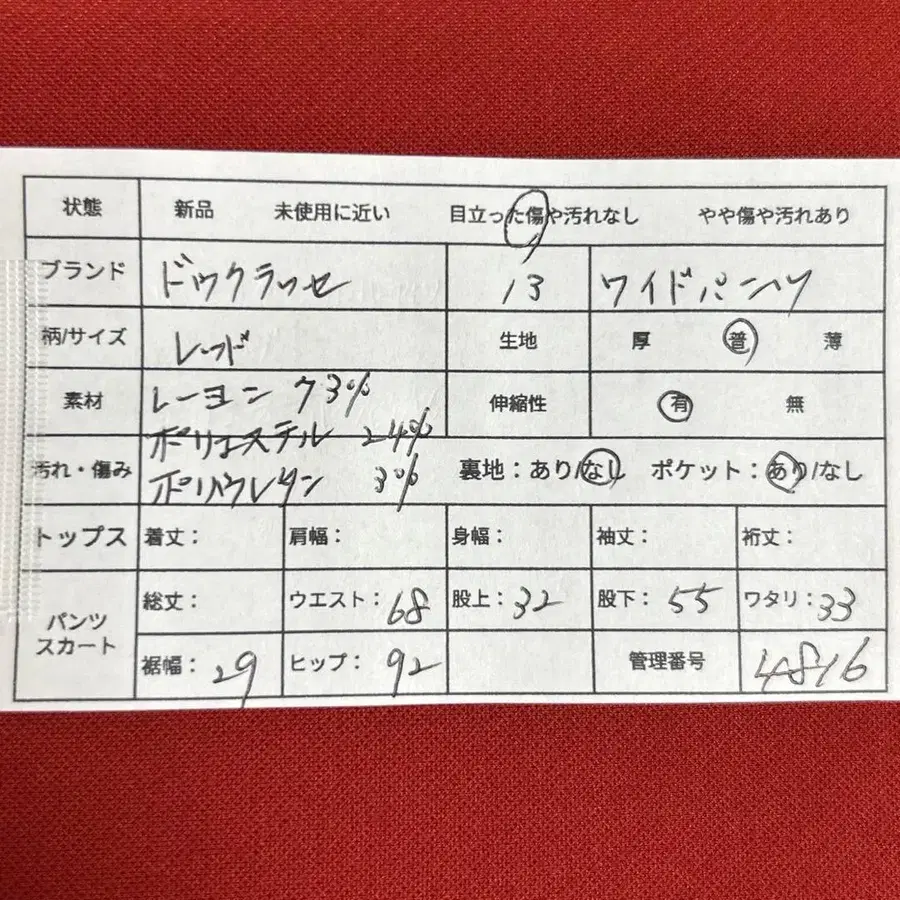 状態 新品 未使用に近い 目立った傷や汚れなし やや傷や汚れあり
ブランド ドゥクラッセ 13 ワイドパンツ
柄/サイズ レッド 生地 厚 普 薄
素材 レーヨン 73% 伸縮性 有 無
ポリエステル 24%
汚れ・傷み ポリウレタン 3% 裏地:あり/なし ポケット:あり/なし
トップス 着丈: 肩幅: 身幅: 袖丈: 裄丈:
パンツ スカート 総丈: ウエスト:68 股上:32 股下:55 ワタリ:33
裾幅:29 ヒップ:92 管理番号 4816